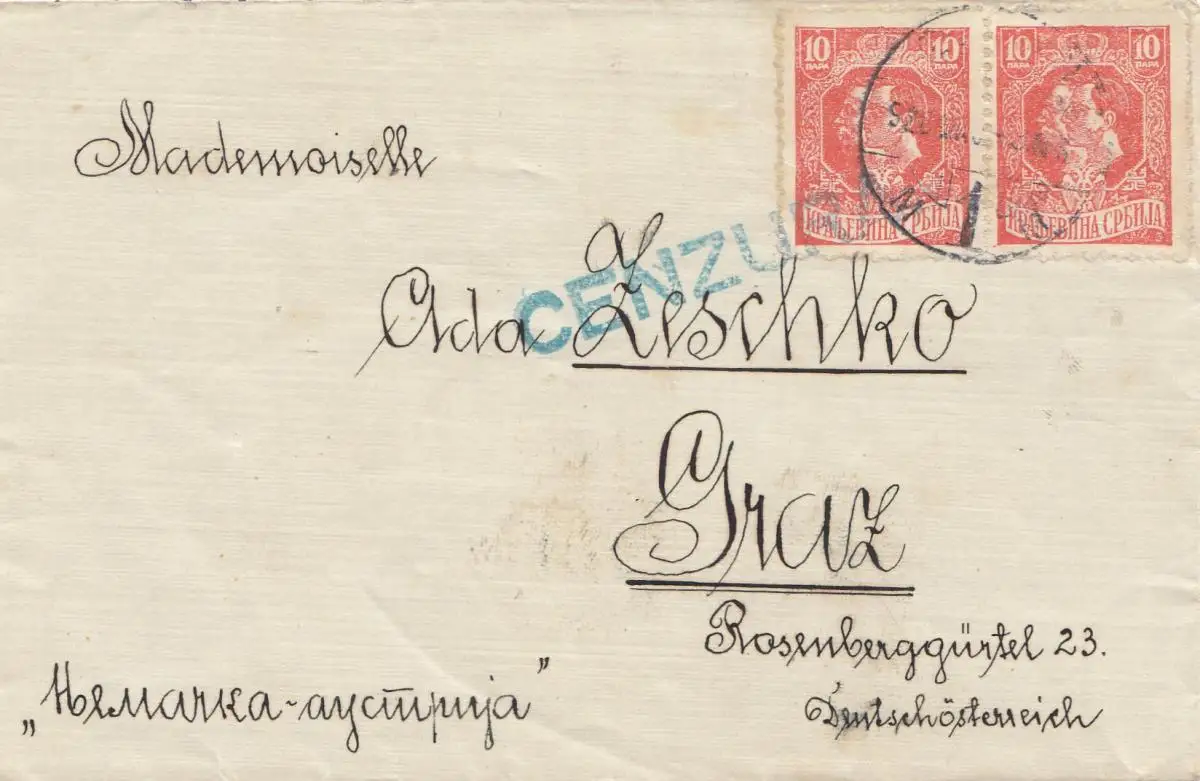 10 ПАРА 10 ПАРА
КРАЉЕВИНА СРБИЈА
10 ПАРА 10 ПАРА
КРАЉЕВИНА СРБИЈА
Mademoiselle
Ada Zeschko
Graz
Rosenberggürtel 23.
Deutschösterreich
„Немачка-аустрија"